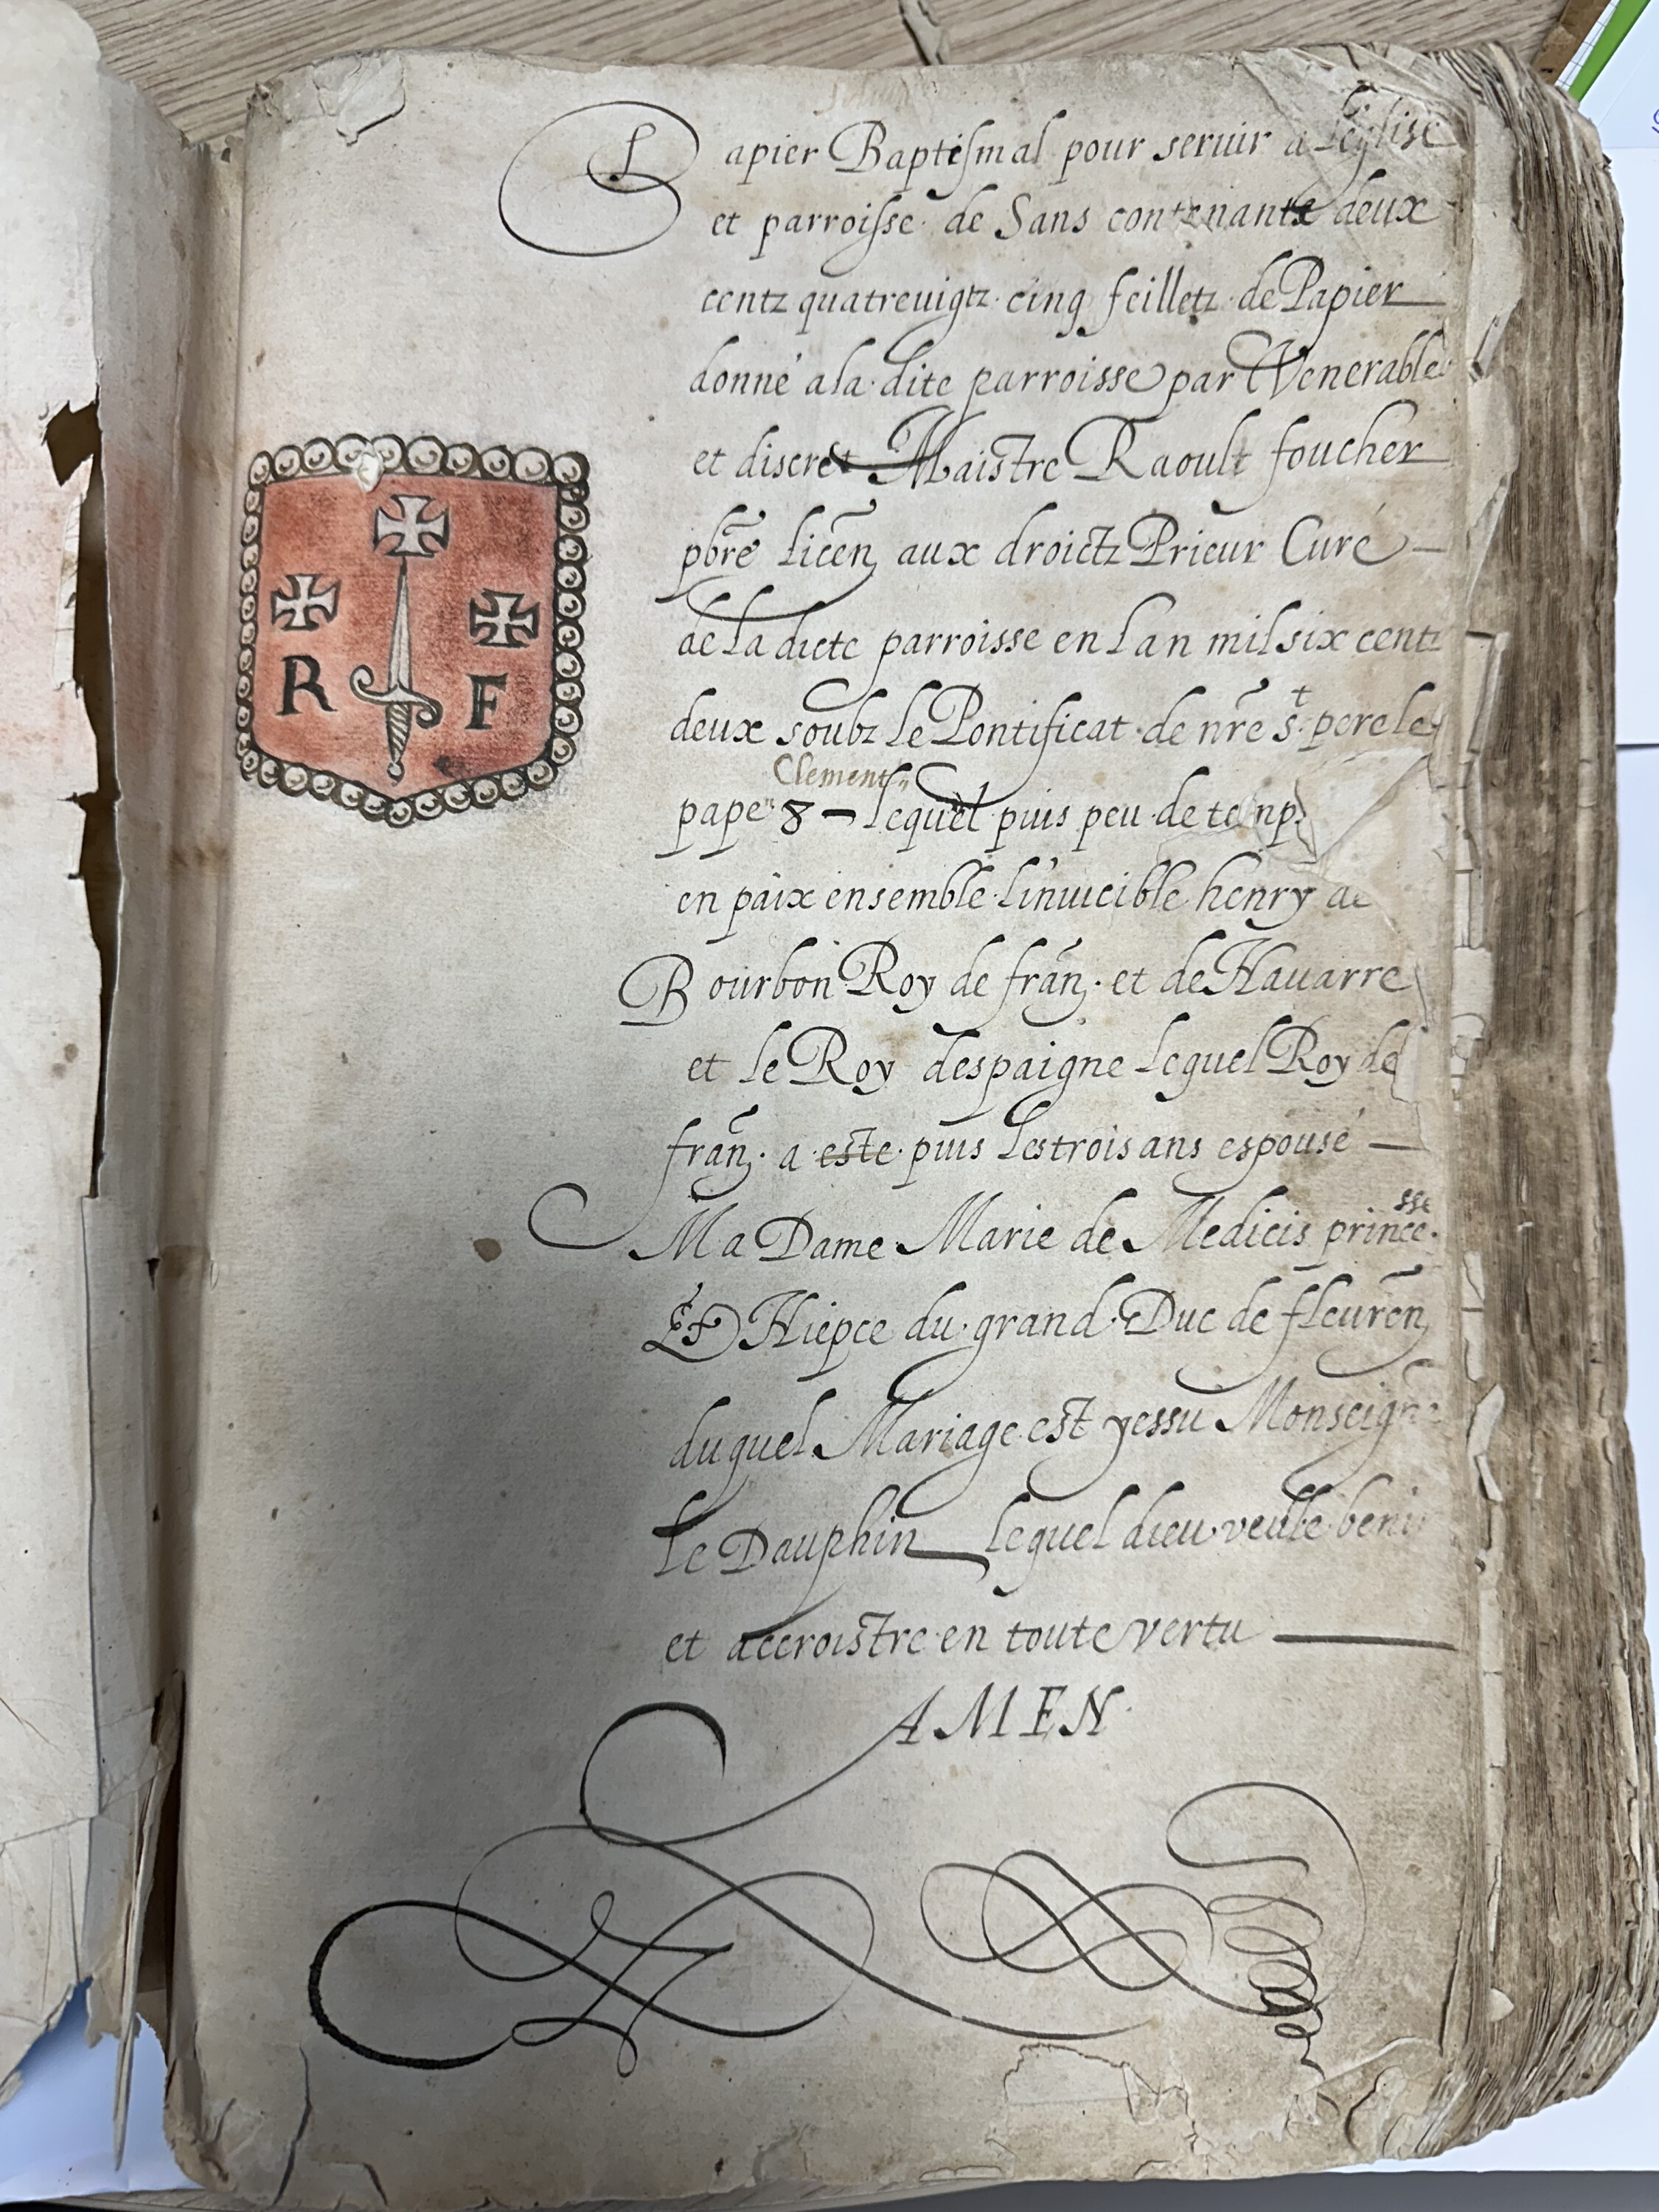 Papier Baptesmal pour seruir a Leglise
et parroisse de Sans contenante deux
centz quatreuigtz cinq feilletz de Papier
donné a la dite parroisse par Venerable
et discret Maistre Raoult foucher
pbrē licēn aux droictz Prieur Curé
de la dicte parroisse en Lan mil six centz
deux soubz le Pontificat de nrē st pere le
Clement
pape 8 lequel puis peu de temps
en paix ensemble linuicible henry de
Bourbon Roy de frān et de Nauarre
et le Roy despaigne lequel Roy de
frān a este puis les trois ans espousé
sse
Ma Dame Marie de Medicis prince
Et Niepce du grand Duc de fleurēn
duquel Mariage est yessu Monseign
le Dauphin lequel dieu veulle benir
et accroistre en toute vertu
AMEN
R F